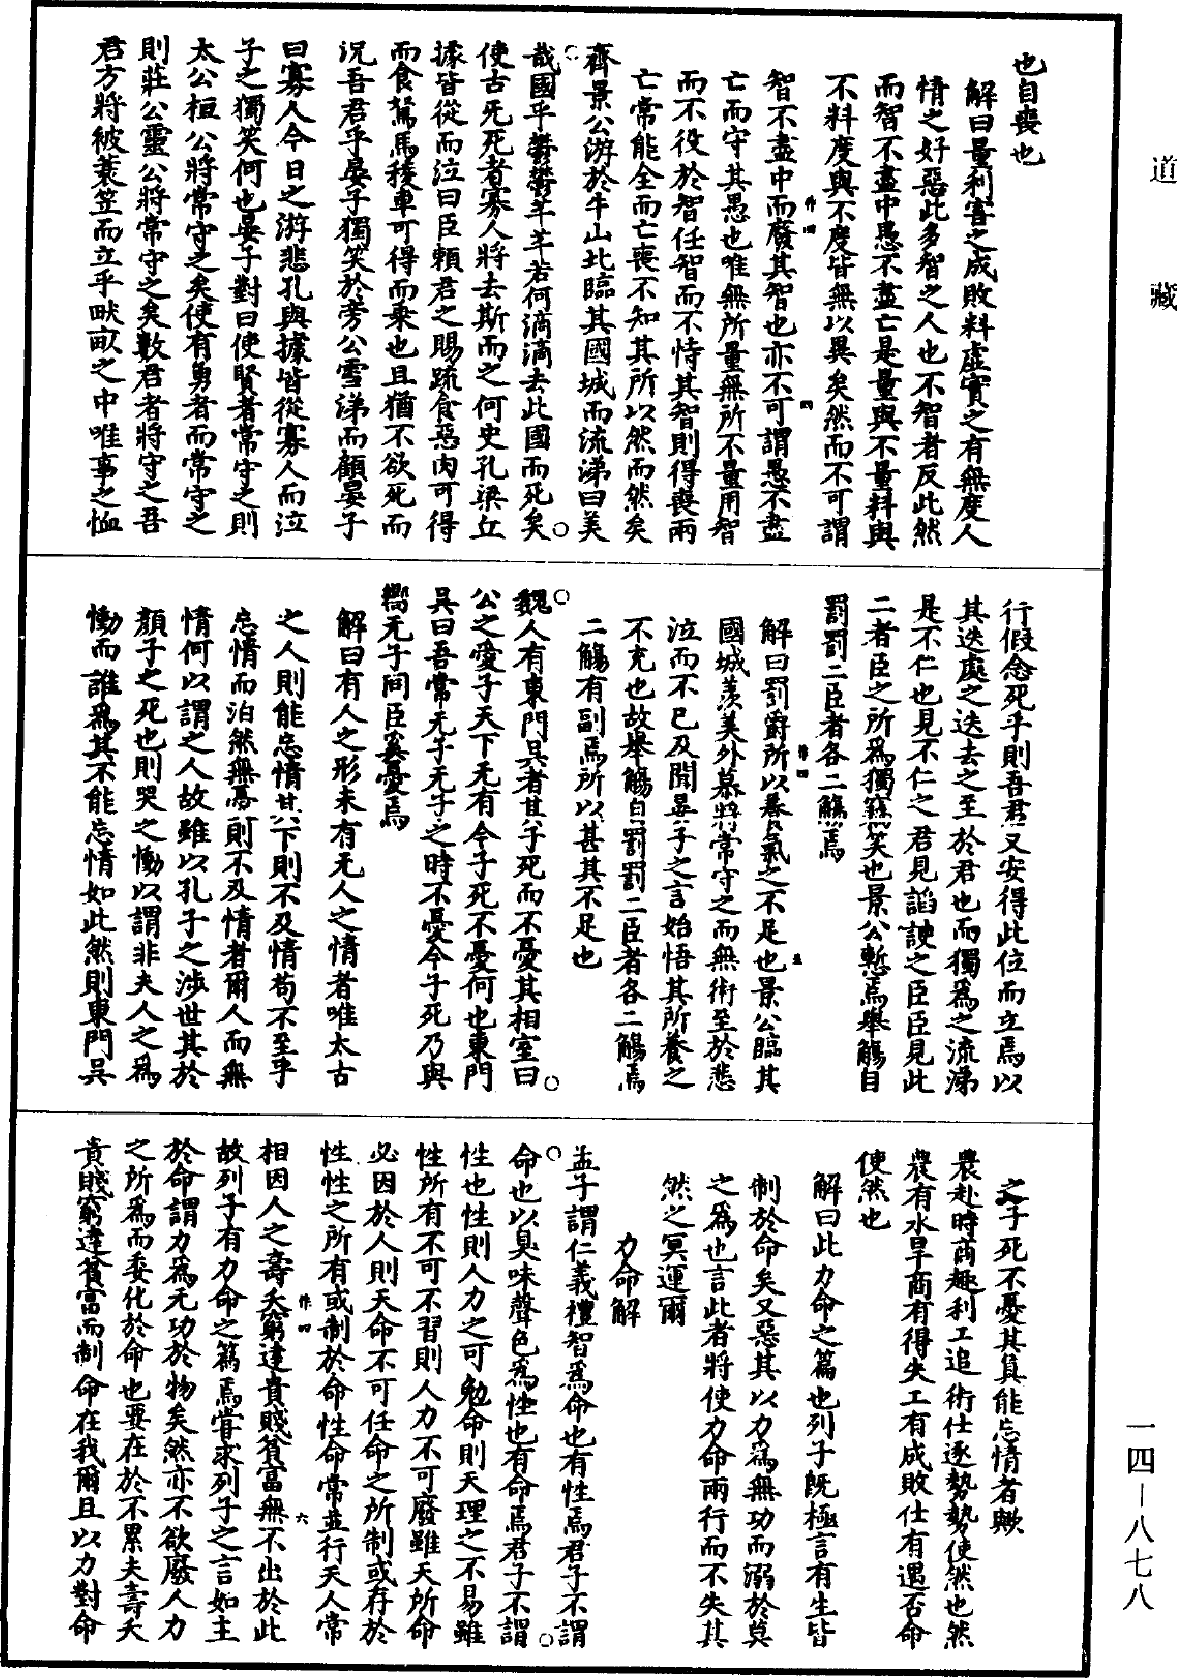 道藏
也自喪也
解曰量利害之成敗料虛實之有無度人
情之好惡此多智之人也不智者反此然
而智不盡中愚不盡亡是量與不量料與
不料度與不度皆無以異矣然而不可謂
智不盡中而廢其智也亦不可謂愚不盡
亡而守其愚也唯無所量無所不量用智
而不役於智任智而不恃其智則得喪兩
亡常能全而亡喪不知其所以然而然矣
齊景公游於牛山北臨其國城而流涕曰美
哉國乎鬱鬱芊芊若何滴滴去此國而死矣
使古无死者寡人將去斯而之何史孔梁丘
據皆從而泣曰臣賴君之賜疏食惡肉可得
而食駑馬稜車可得而乘也且猶不欲死而
況吾君乎晏子獨笑於旁公雪涕而顧晏子
曰寡人今日之游悲孔與據皆從寡人而泣
子之獨笑何也晏子對曰使賢者常守之則
太公桓公將常守之矣使有勇者而常守之
則莊公靈公將常守之矣數君者將守之吾
君方將被蓑笠而立乎畎畝之中唯事之恤
行假念死乎則吾君又安得此位而立焉以
其迭處之迭去之至於君也而獨為之流涕
是不仁也見不仁之君見諂諛之臣臣見此
二者臣之所為獨竊笑也景公慙焉舉觴自
罰罰二臣者各二觴焉
解曰罰爵所以養氣之不足也景公臨其
國城羨美外慕將常守之而無術至於悲
泣而不已及聞晏子之言始悟其所養之
不充也故舉觴自罰罰二臣者各二觴焉
二觴有副焉所以甚其不足也
魏人有東門吳者其子死而不憂其相室曰
公之愛子天下无有今子死不憂何也東門
吳曰吾常无子无子之時不憂今子死乃與
嚮无子同臣奚憂焉
解曰有人之形未有无人之情者唯太古
之人則能忘情其下則不及情苟不至乎
忘情而泊然無憂則不及情者爾人而無
情何以謂之人故雖以孔子之涉世其於
顏子之死也則哭之慟以謂非夫人之為
慟而誰為其不能忘情如此然則東門吳
之子死不憂其算能忘情者歟
農赴時商趣利工追術仕逐勢勢使然也然
農有水旱商有得失工有成敗仕有遇否命
使然也
解曰此力命之篇也列子既極言有生皆
制於命矣又惡其以力為無功而溺於莫
之為也言此者將使力命兩行而不失其
然之冥運爾
力命解
孟子謂仁義禮智為命也有性焉君子不謂
命也以臭味聲色為性也有命焉君子不謂
性也性則人力之可勉命則天理之不易雖
性所有不可不習則人力不可廢雖天所命
必因於人則天命不可任命之所制或存於
性性之所有或制於命性命常並行天人常
相因人之壽夭窮達貴賤貧富無不出於此
故列子有力命之篇焉嘗求列子之言如主
於命謂力為无功於物矣然亦不欲廢人力
之所為而委化於命也要在於不累夫壽夭
貴賤窮達貧富而制命在我爾且以力對命
一四—八七八